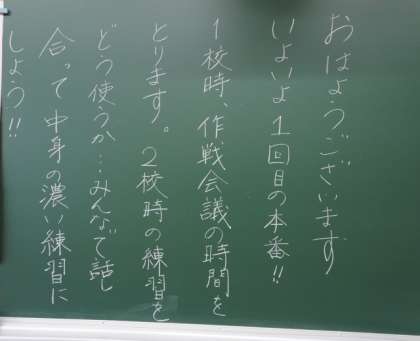 おはようございます
いよいよ1回目の本番!!
1校時、作戦会議の時間を
とります。2校時の練習を
どう使うか…みんなで話し
合って中身の濃い練習に
しよう!!